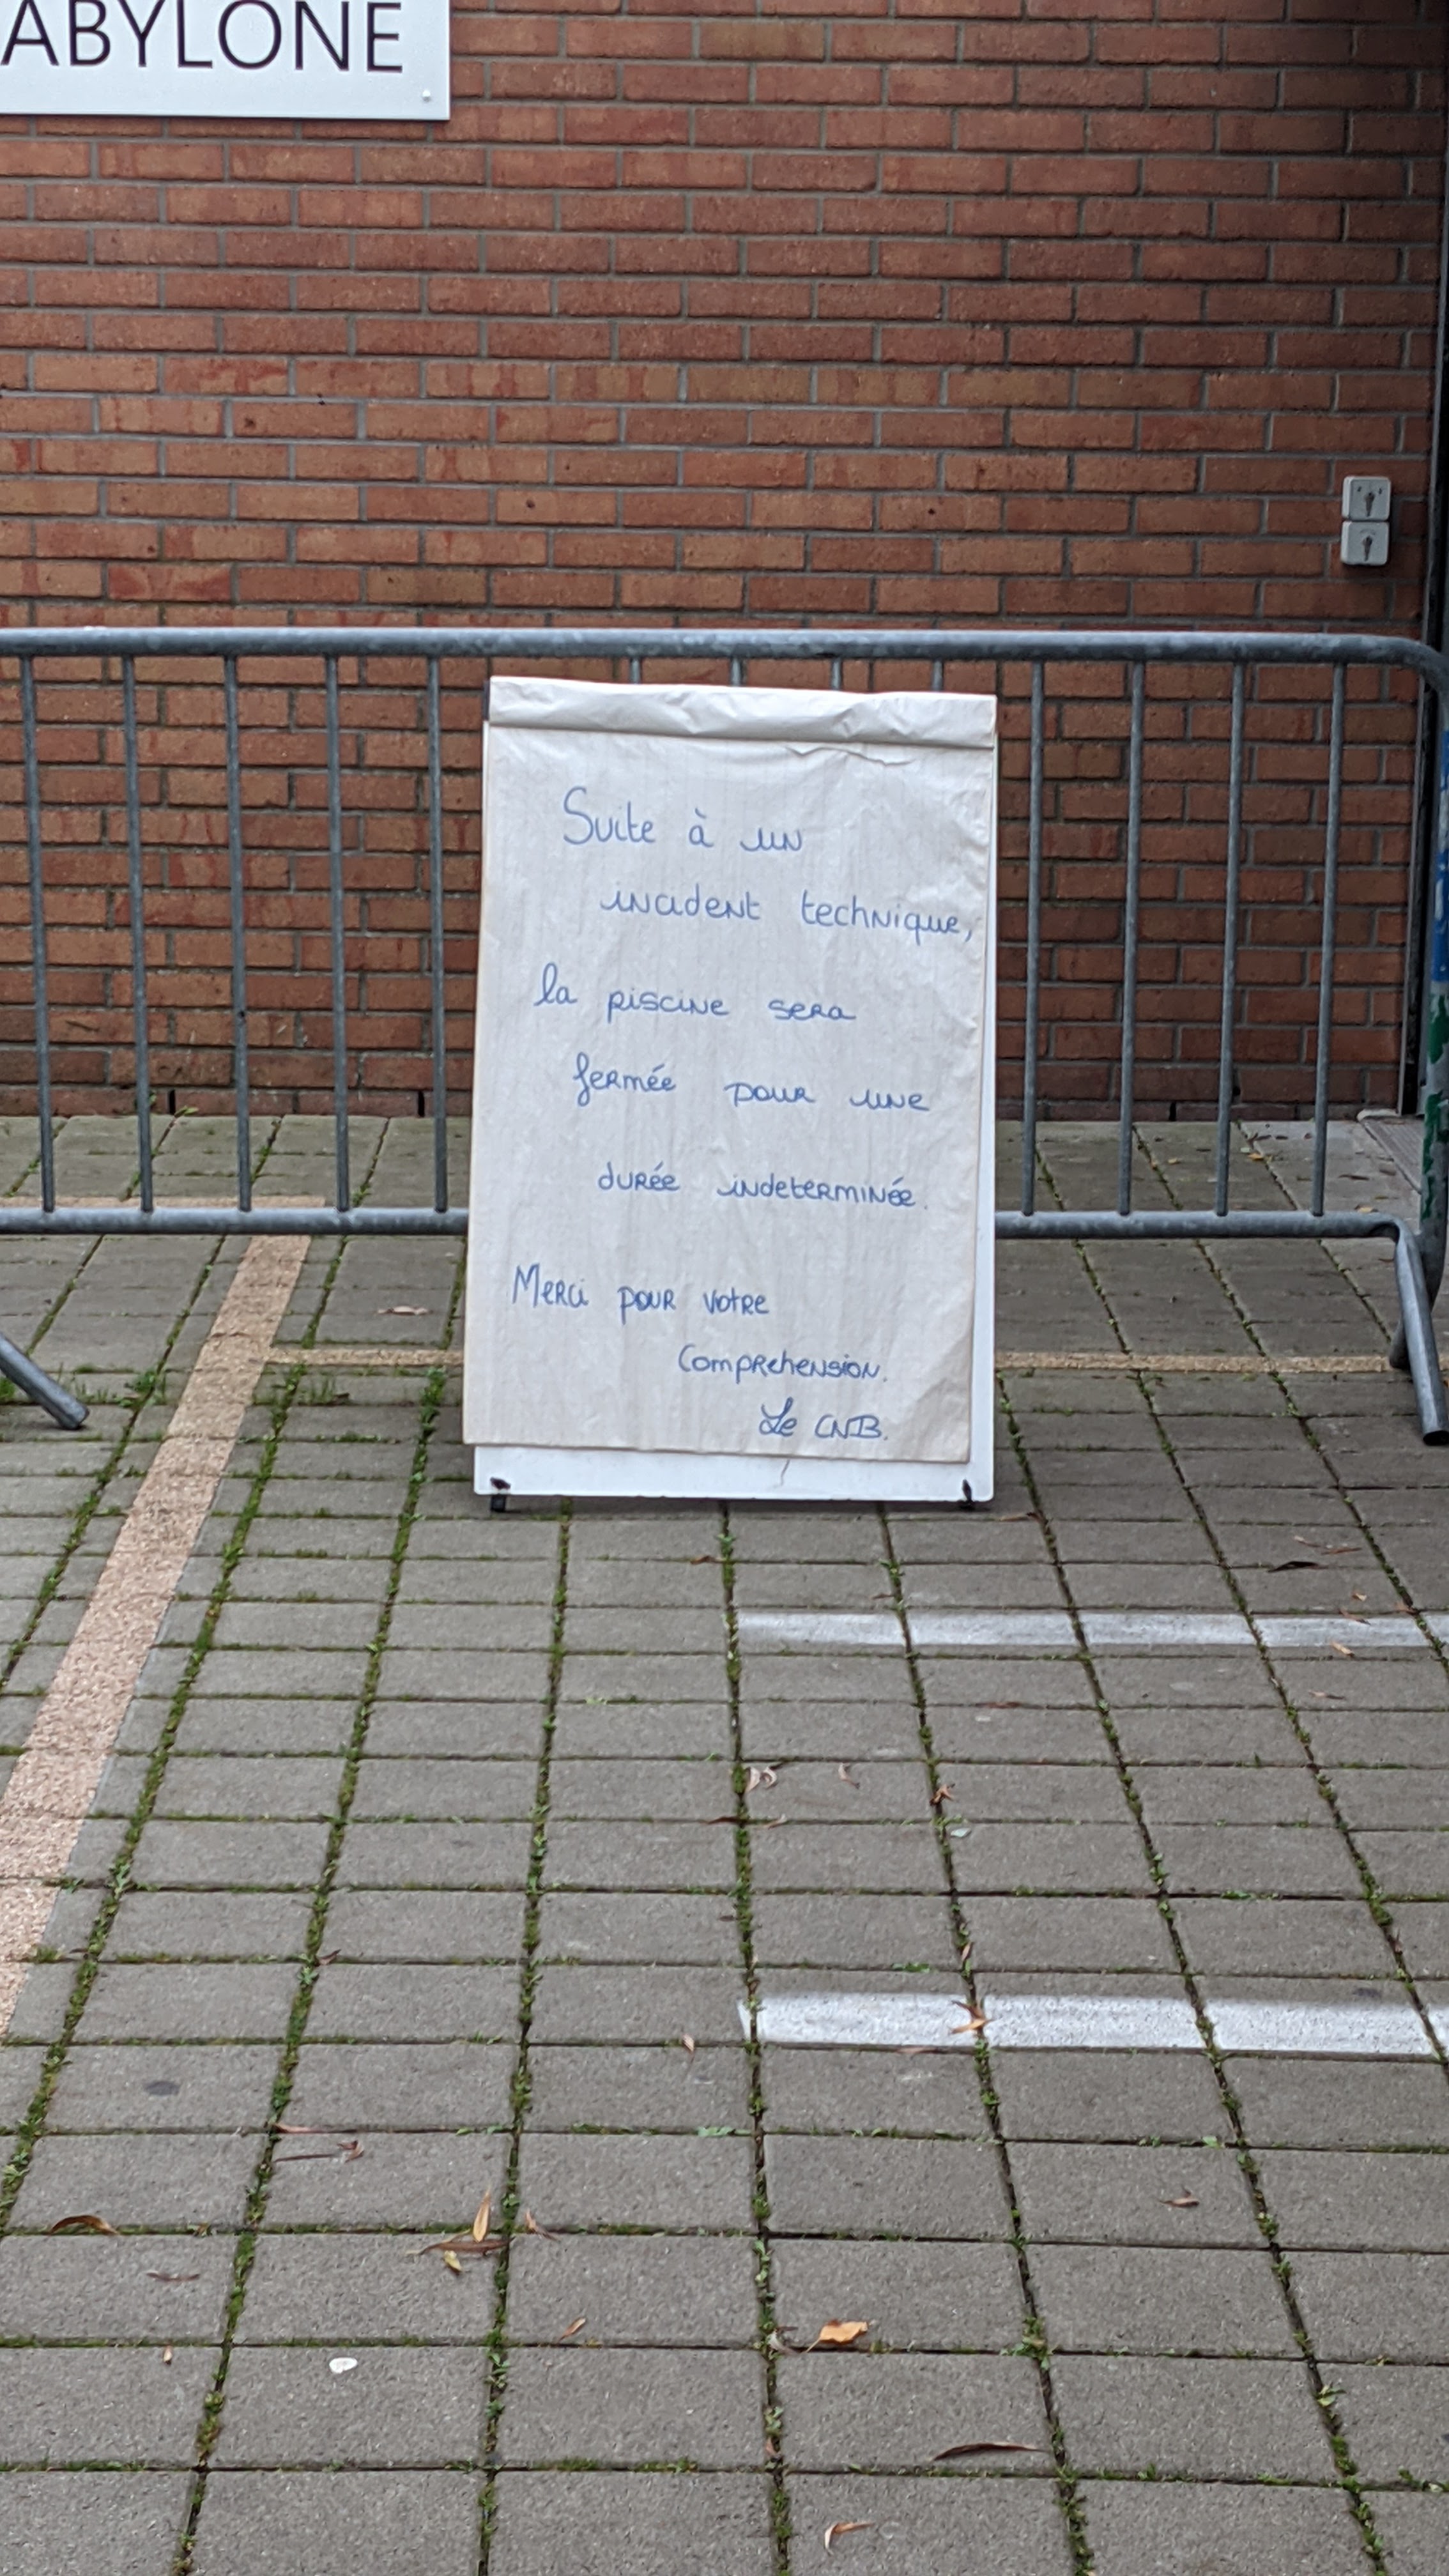 ABYLONE
Suite à un
incident technique,
la piscine sera
fermée pour une
durée indeterminée.
Merci pour votre
Comprehension.
Le CNB.